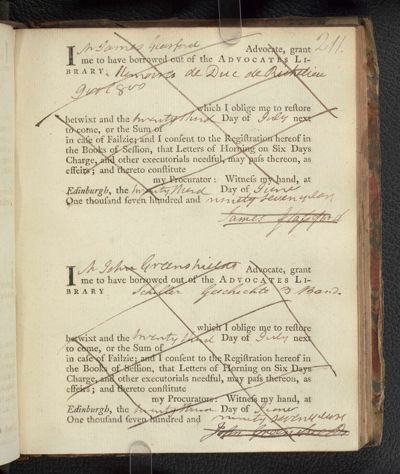 211.
I Mr James Glasford Advocate, grant
me to have borrowed out of the ADVOCATES LI-
BRARY, Memoires de Duc de Richelieu
9 vol 8vo
which I oblige me to restore
betwixt and the twenty third Day of July next
to come, or the Sum of
in case of Failzie; and I consent to the Registration hereof in
the Books of Session, that Letters of Horning on Six Days
Charge, and other executorials needful, may pass thereon, as
effeirs; and thereto constitute
my Procurator: Witness my hand, at
Edinburgh, the twenty third Day of June
One thousand seven hundred and ninety seven years
James Glassford
I Mr John Greenshields Advocate, grant
me to have borrowed out of the ADVOCATES LI-
BRARY Schiller Geschichte 3 Bande
which I oblige me to restore
betwixt and the twenty third Day of July next
to come, or the Sum of
in case of Failzie; and I consent to the Registration hereof in
the Books of Session, that Letters of Horning on Six Days
Charge, and other executorials needful, may pass thereon, as
effeirs; and thereto constitute
my Procurators: Witness my hand, at
Edinburgh, the twenty third Day of June
One thousand seven hundred and ninety seven years
John Greenshields